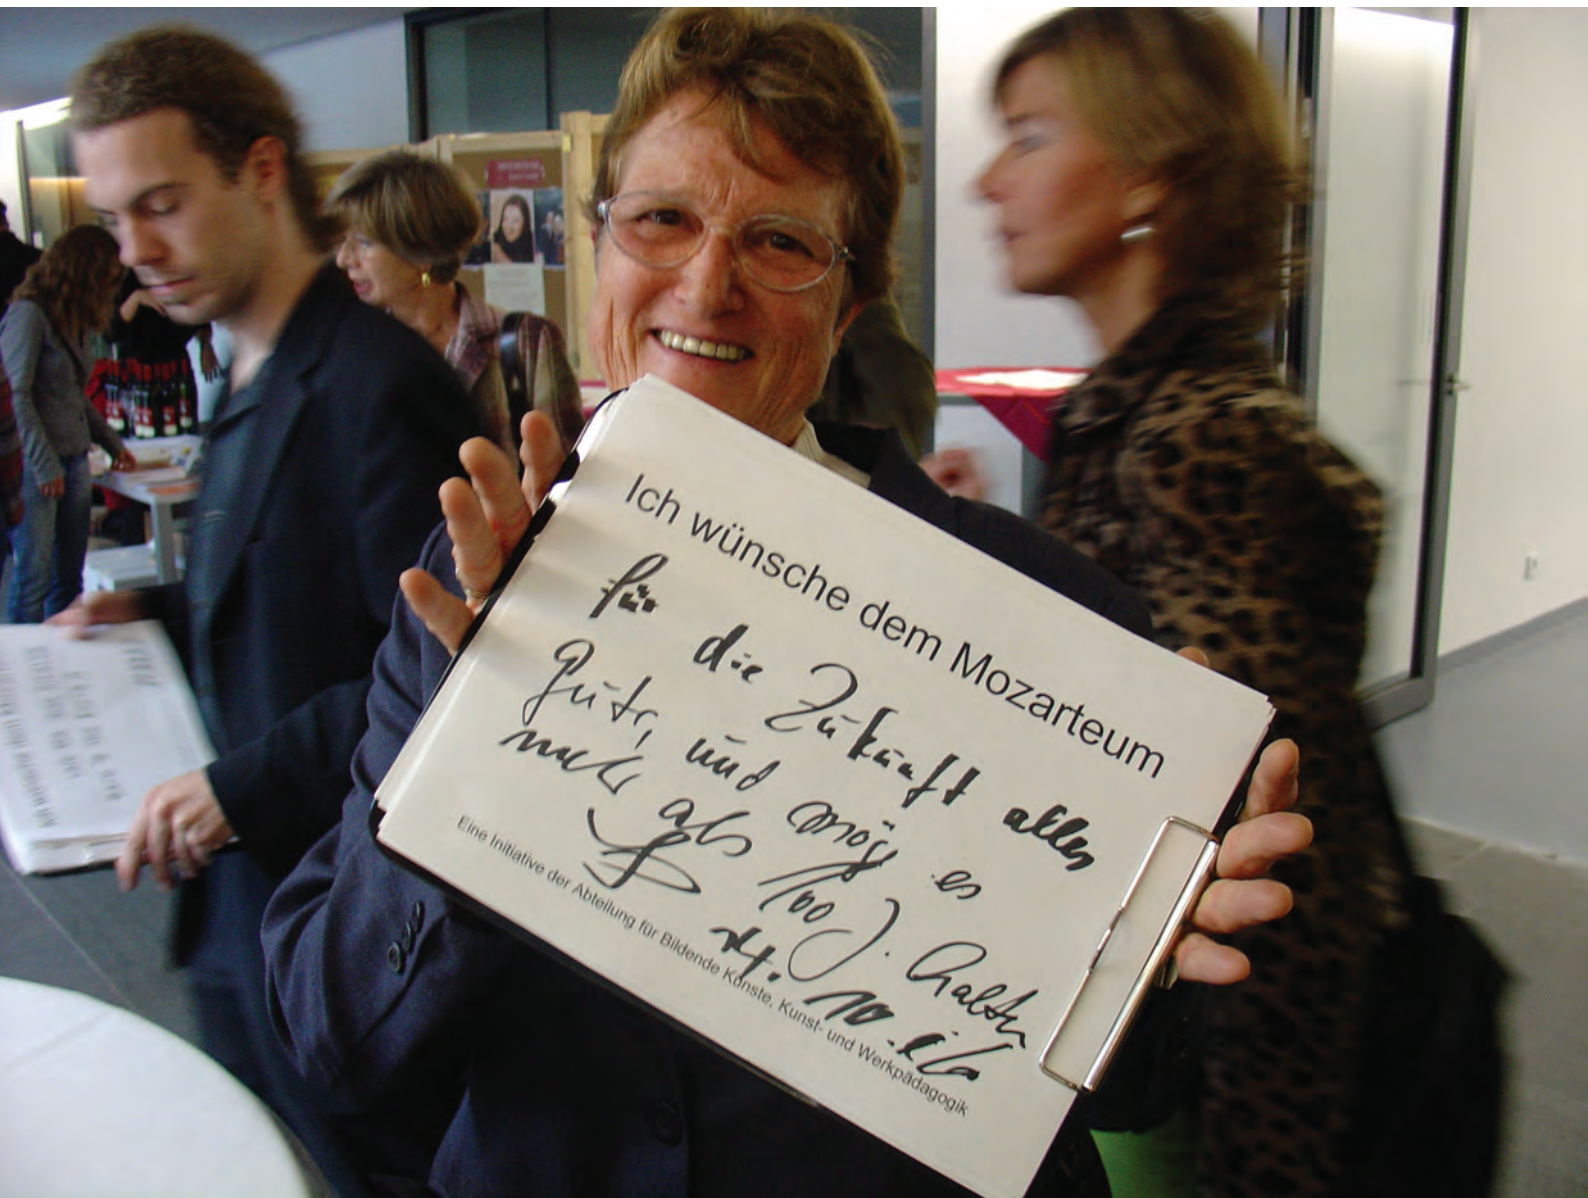 Ich wünsche dem Mozarteum
für
die Zukunft alles
Gute, und möge es
mehr als 100 J. halten
14. 10.
Eine Initiative der Abteilung für Bildende Künste, Kunst- und Werkpädagogik